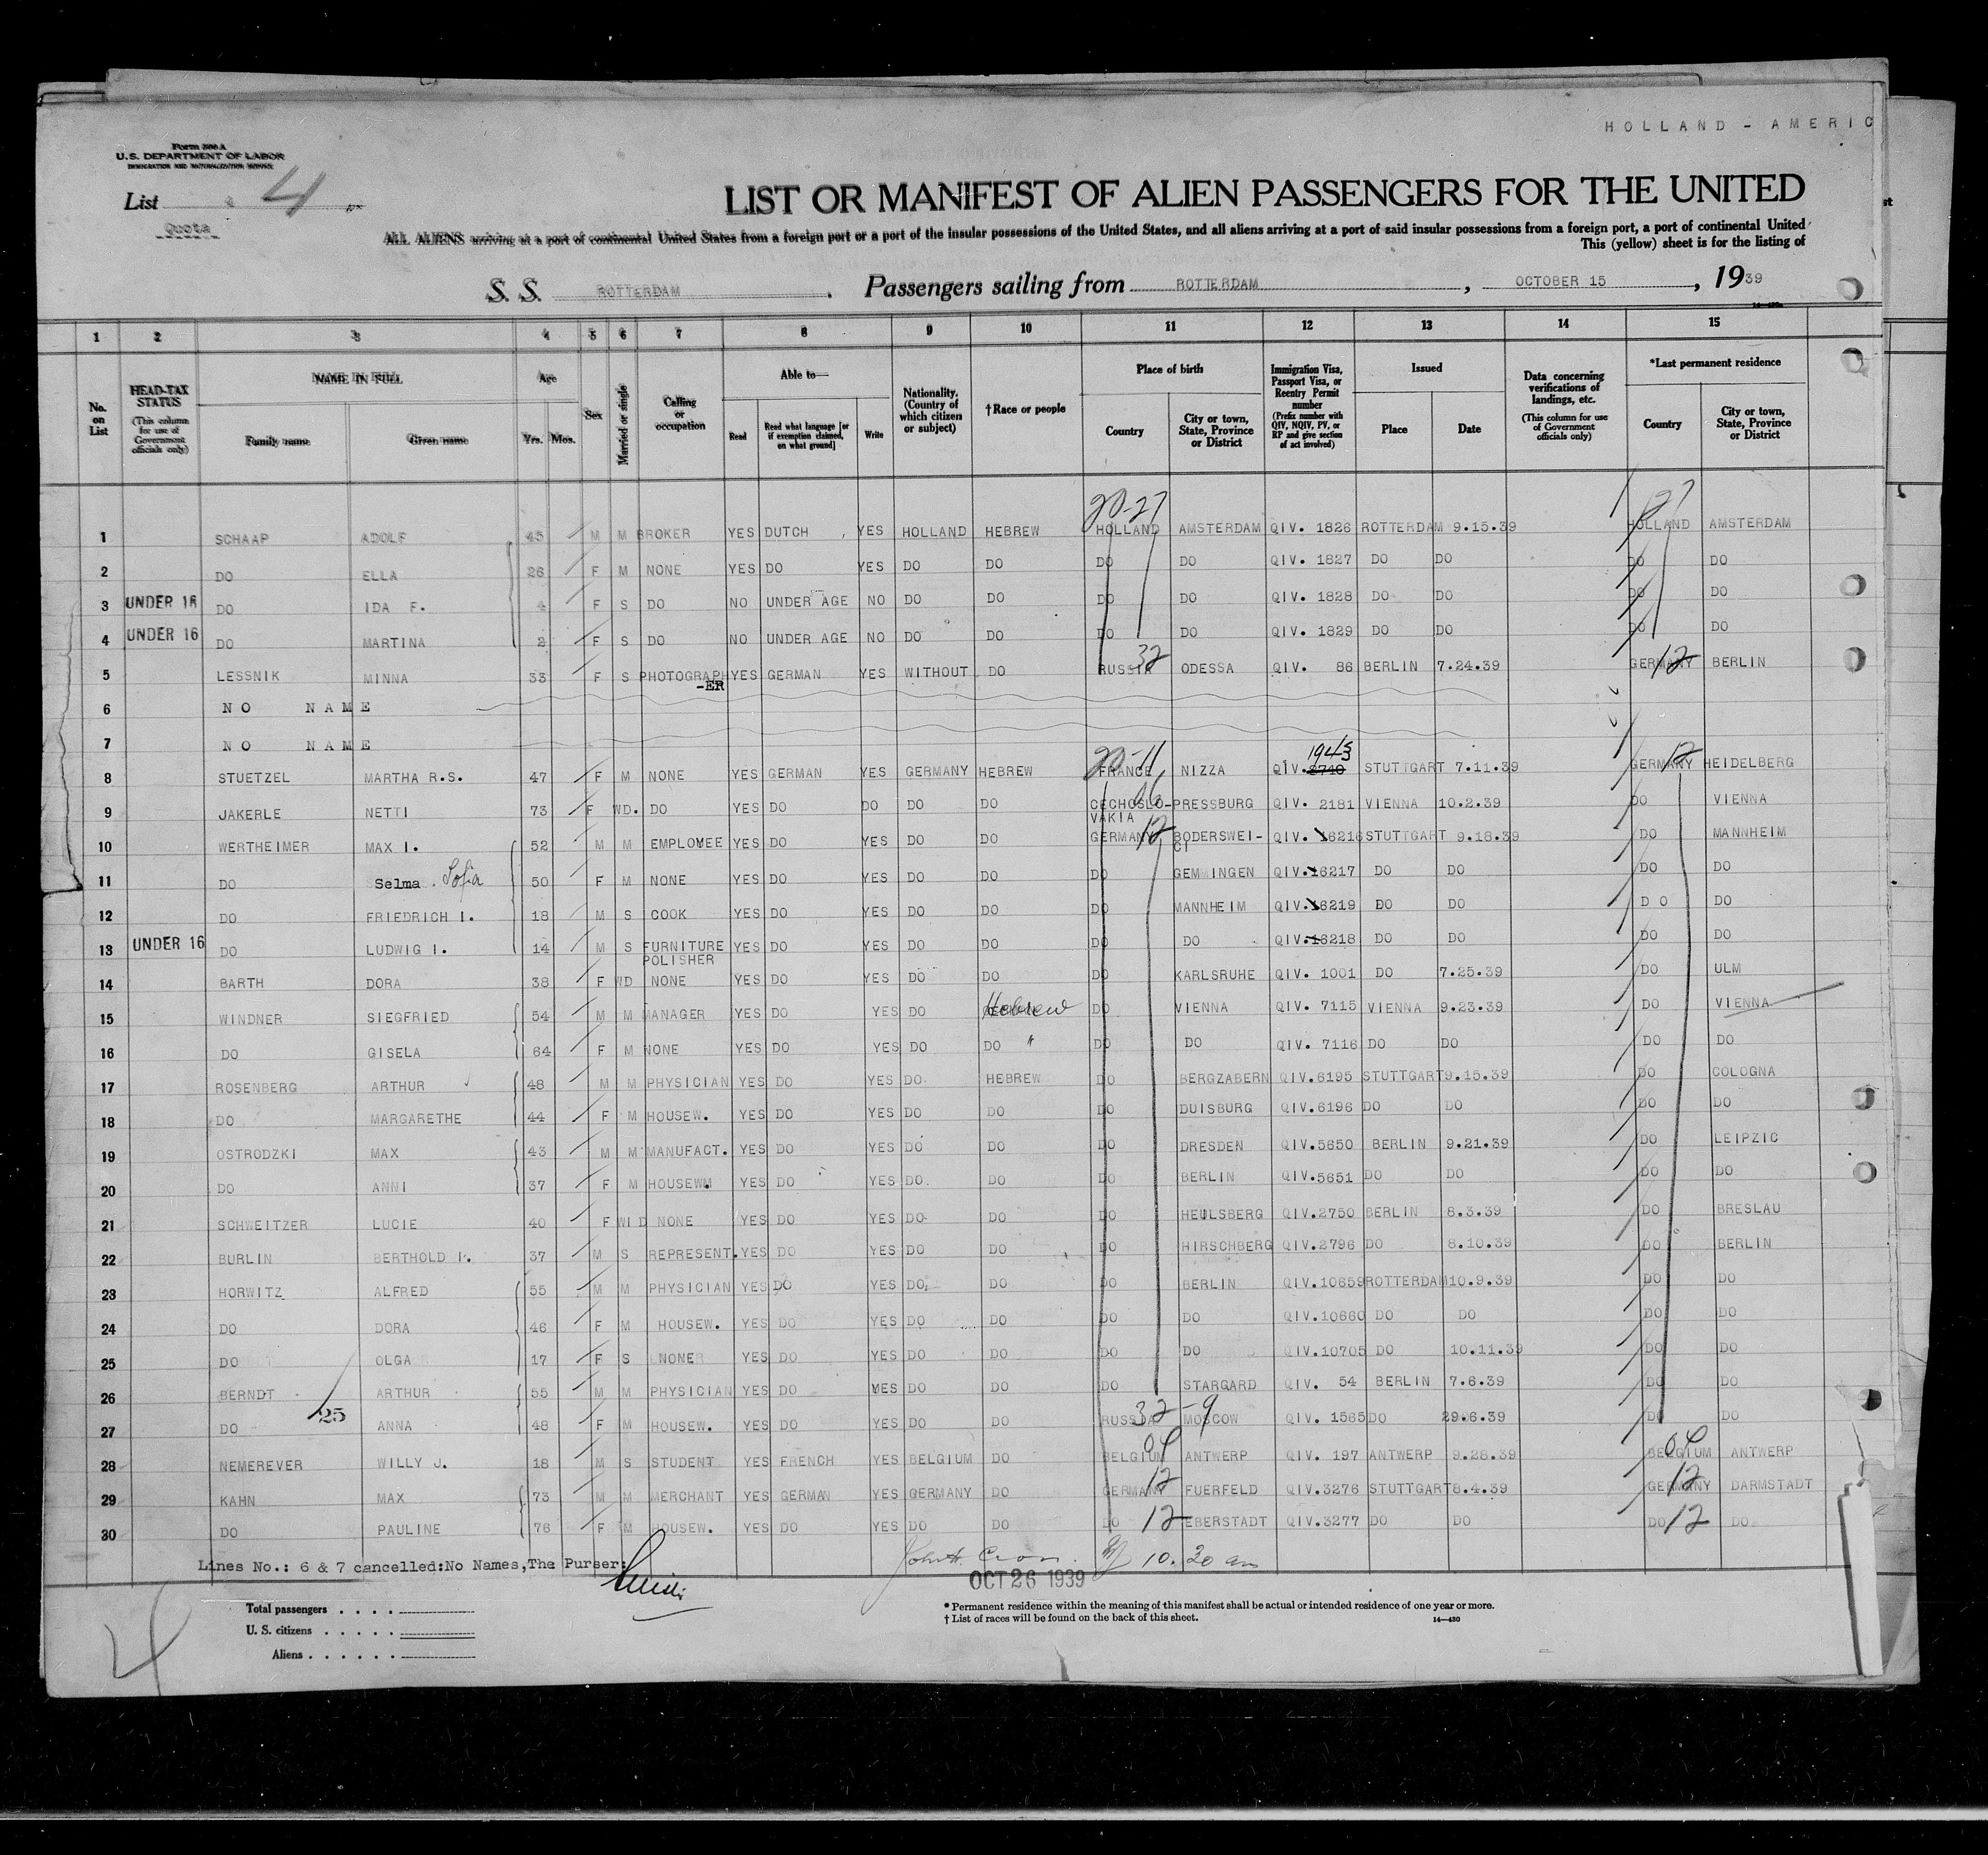 HOLLAND - AMERIC
Form 500 A
U.S. DEPARTMENT OF LABOR
IMMIGRATION AND NATURALIZATION SERVICE
List 4
Quota
LIST OR MANIFEST OF ALIEN PASSENGERS FOR THE UNITED
ALL ALIENS arriving at a port of continental United States from a foreign port or a port of the insular possessions of the United States, and all aliens arriving at a port of said insular possessions from a foreign port, a port of continental United
This (yellow) sheet is for the listing of
S. S. ROTTERDAM . Passengers sailing from ROTTERDAM , OCTOBER 15 , 1939
1 2 3 4 5 6 7 8 9 10 11 12 13 14 15
No. on List
HEAD-TAX STATUS (This column for use of Government officials only)
NAME IN FULL Family name Given name
Age Yrs. Mos.
Sex
Married or single
Calling or occupation
Able to— Read Read what language [or if exemption claimed, on what ground] Write
Nationality. (Country of which citizen or subject)
†Race or people
Place of birth Country City or town, State, Province or District
Immigration Visa, Passport Visa, or Reentry Permit number (Prefix number with QIV, NQIV, PV, or RP and give section of act involved)
Issued Place Date
Data concerning verifications of landings, etc. (This column for use of Government officials only)
*Last permanent residence Country City or town, State, Province or District
20-27 27
1 SCHAAP ADOLF 45 M M BROKER YES DUTCH , YES HOLLAND HEBREW HOLLAND AMSTERDAM QIV. 1826 ROTTERDAM 9.15.39 HOLLAND AMSTERDAM
2 DO ELLA 26 F M NONE YES DO YES DO DO DO DO QIV. 1827 DO DO DO DO
3 UNDER 16 DO IDA F. 4 F S DO NO UNDER AGE NO DO DO DO DO QIV. 1828 DO DO DO DO
4 UNDER 16 DO MARTINA 2 F S DO NO UNDER AGE NO DO DO DO DO QIV. 1829 DO DO DO DO
5 LESSNIK MINNA 33 F S PHOTOGRAPH-ER YES GERMAN YES WITHOUT DO RUSSIA 32 ODESSA QIV. 86 BERLIN 7.24.39 GERMANY 12 BERLIN
6 NO NAME
7 NO NAME
20-11 1943
8 STUETZEL MARTHA R.S. 47 F M NONE YES GERMAN YES GERMANY HEBREW FRANCE NIZZA QIV. 2740 STUTTGART 7.11.39 GERMANY 12 HEIDELBERG
9 JAKERLE NETTI 73 F WD. DO YES DO DO DO DO CECHOSLO-VAKIA 06 PRESSBURG QIV. 2181 VIENNA 10.2.39 DO VIENNA
10 WERTHEIMER MAX I. 52 M M EMPLOYEE YES DO YES DO DO GERMANY 12 BODERSWEI-CI QIV. 16216 STUTTGART 9.18.39 DO MANNHEIM
11 DO Selma . Sofia 50 F M NONE YES DO YES DO DO DO GEMMINGEN QIV. 16217 DO DO DO DO
12 DO FRIEDRICH I. 18 M S COOK YES DO YES DO DO DO MANNHEIM QIV. 16219 DO DO DO DO
13 UNDER 16 DO LUDWIG I. 14 M S FURNITURE POLISHER YES DO YES DO DO DO DO QIV. 16218 DO DO DO DO
14 BARTH DORA 38 F WD NONE YES DO YES DO DO DO KARLSRUHE QIV. 1001 DO 7.25.39 DO ULM
15 WINDNER SIEGFRIED 54 M M MANAGER YES DO YES DO Hebrew DO VIENNA QIV. 7115 VIENNA 9.23.39 DO VIENNA
16 DO GISELA 64 F M NONE YES DO YES DO DO " DO DO QIV. 7116 DO DO DO DO
17 ROSENBERG ARTHUR 48 M M PHYSICIAN YES DO YES DO HEBREW DO BERGZABERN QIV.6195 STUTTGART 9.15.39 DO COLOGNA
18 DO MARGARETHE 44 F M HOUSEW. YES DO YES DO DO DO DUISBURG QIV.6196 DO DO DO DO
19 OSTRODZKI MAX 43 M M MANUFACT. YES DO YES DO DO DO DRESDEN QIV.5650 BERLIN 9.21.39 DO LEIPZIG
20 DO ANNI 37 F M HOUSEW. YES DO YES DO DO DO BERLIN QIV.5651 DO DO DO DO
21 SCHWEITZER LUCIE 40 F WID NONE YES DO YES DO DO DO HEULSBERG QIV.2750 BERLIN 8.3.39 DO BRESLAU
22 BURLIN BERTHOLD I. 37 M S REPRESENT. YES DO YES DO DO DO HIRSCHBERG QIV.2796 DO 8.10.39 DO BERLIN
23 HORWITZ ALFRED 55 M M PHYSICIAN YES DO YES DO DO DO BERLIN QIV.10659 ROTTERDAM 10.9.39 DO DO
24 DO DORA 46 F M HOUSEW. YES DO YES DO DO DO DO QIV.10660 DO DO DO DO
25 DO OLGA 17 F S NONE YES DO YES DO DO DO DO QIV.10705 DO 10.11.39 DO DO
26 BERNDT ARTHUR 55 M M PHYSICIAN YES DO YES DO DO DO STARGARD QIV. 54 BERLIN 7.6.39 DO DO
27 DO 25 ANNA 48 F M HOUSEW. YES DO YES DO DO RUSSIA 32-9 MOSCOW QIV. 1565 DO 29.6.39 DO DO
28 NEMEREVER WILLY J. 18 M S STUDENT YES FRENCH YES BELGIUM DO BELGIUM 04 ANTWERP QIV. 197 ANTWERP 9.28.39 BELGIUM 04 ANTWERP
29 KAHN MAX 73 M M MERCHANT YES GERMAN YES GERMANY DO GERMANY 12 FUERFELD QIV.3276 STUTTGART 8.4.39 GERMANY 12 DARMSTADT
30 DO PAULINE 76 F M HOUSEW. YES DO YES DO DO DO 12 EBERSTADT QIV.3277 DO DO DO 12 DO
Lines No.: 6 & 7 cancelled:No Names,The Purser:
John H. 10.20 am
OCT 26 1939
Total passengers
U. S. citizens
Aliens
* Permanent residence within the meaning of this manifest shall be actual or intended residence of one year or more.
† List of races will be found on the back of this sheet.
14—430
4